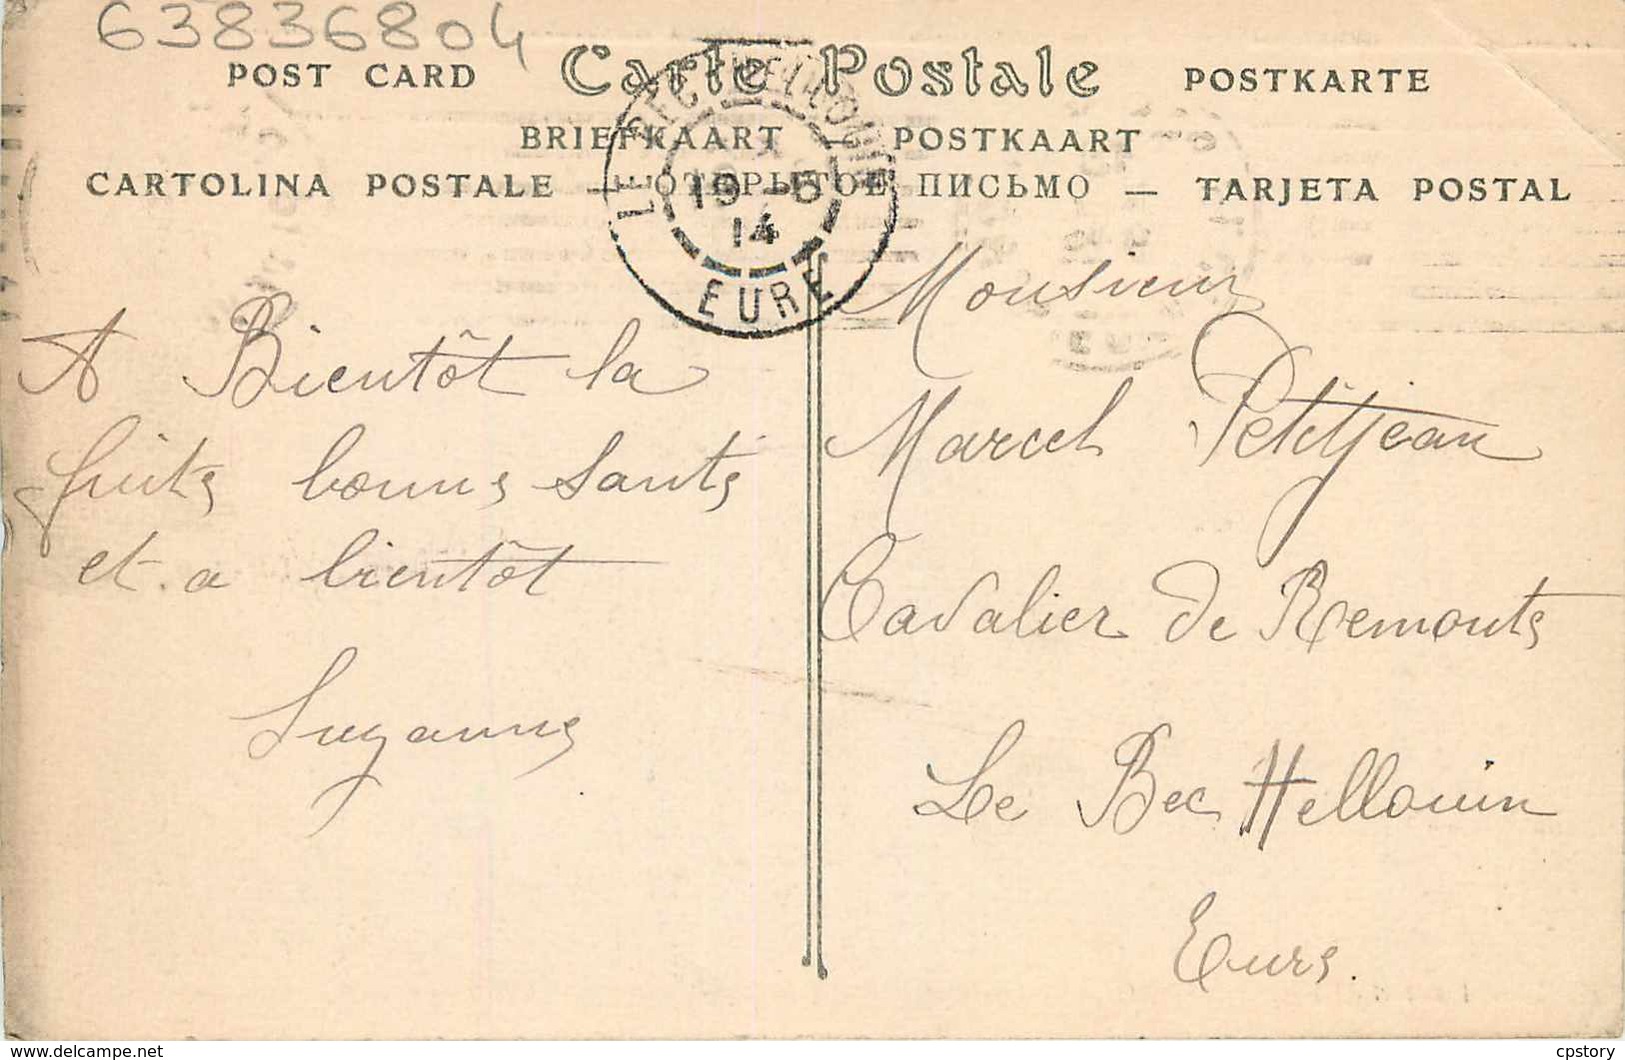 63836804
POST CARD Carte Postale POSTKARTE
BRIEFKAART — POSTKAART
CARTOLINA POSTALE — ОТКРЫТОЕ ПИСЬМО — TARJETA POSTAL
LE BEC-HELLOUIN
19 -5
14
EURE
A Bientôt la
suite bonne santé
et a bientôt
Suzanne
Monsieur
Marcel Petitjean
Cavalier de Remonte
Le Bec Hellouin
Eure.
www.delcampe.net
cpstory